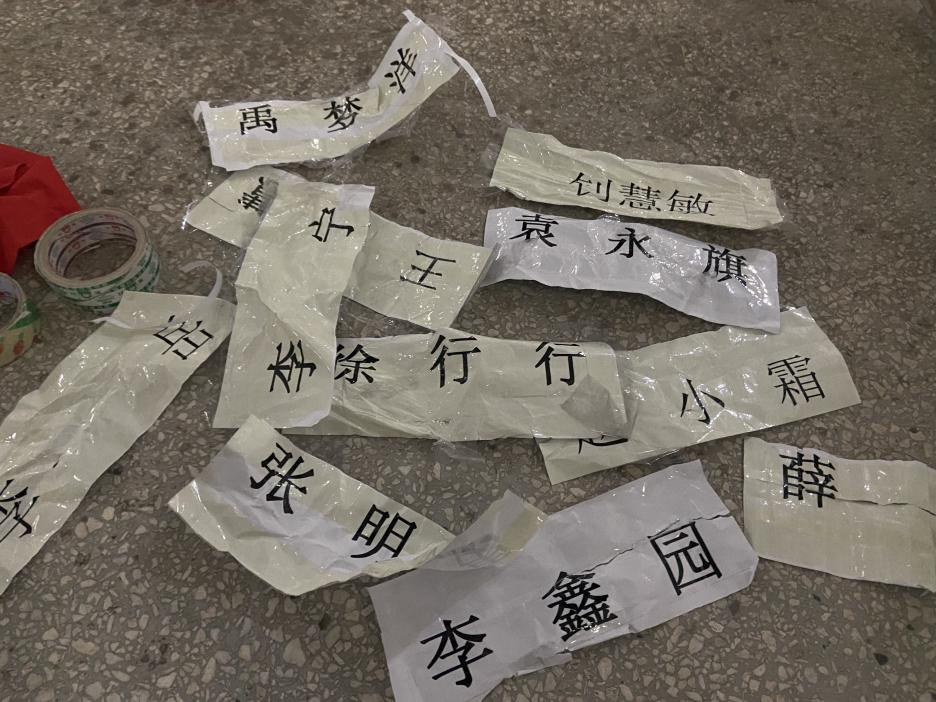 禹梦洋
钊慧敏
袁永旗
王
李宁
岳
徐行行
小霜
张明
薛
李鑫园